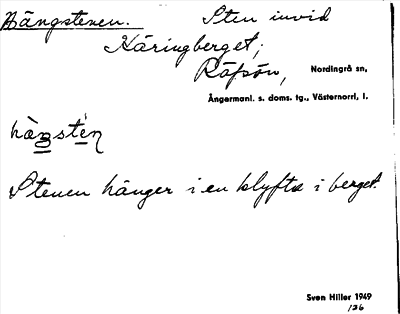 Hängstenen. Sten invid
Käringberget,
Räfsön, Nordingrå sn,
Ångermanl. s. doms. tg., Västernorrl, l.
Stenen hänger i en klyfta i berget.
Sven Hiller 1949
126